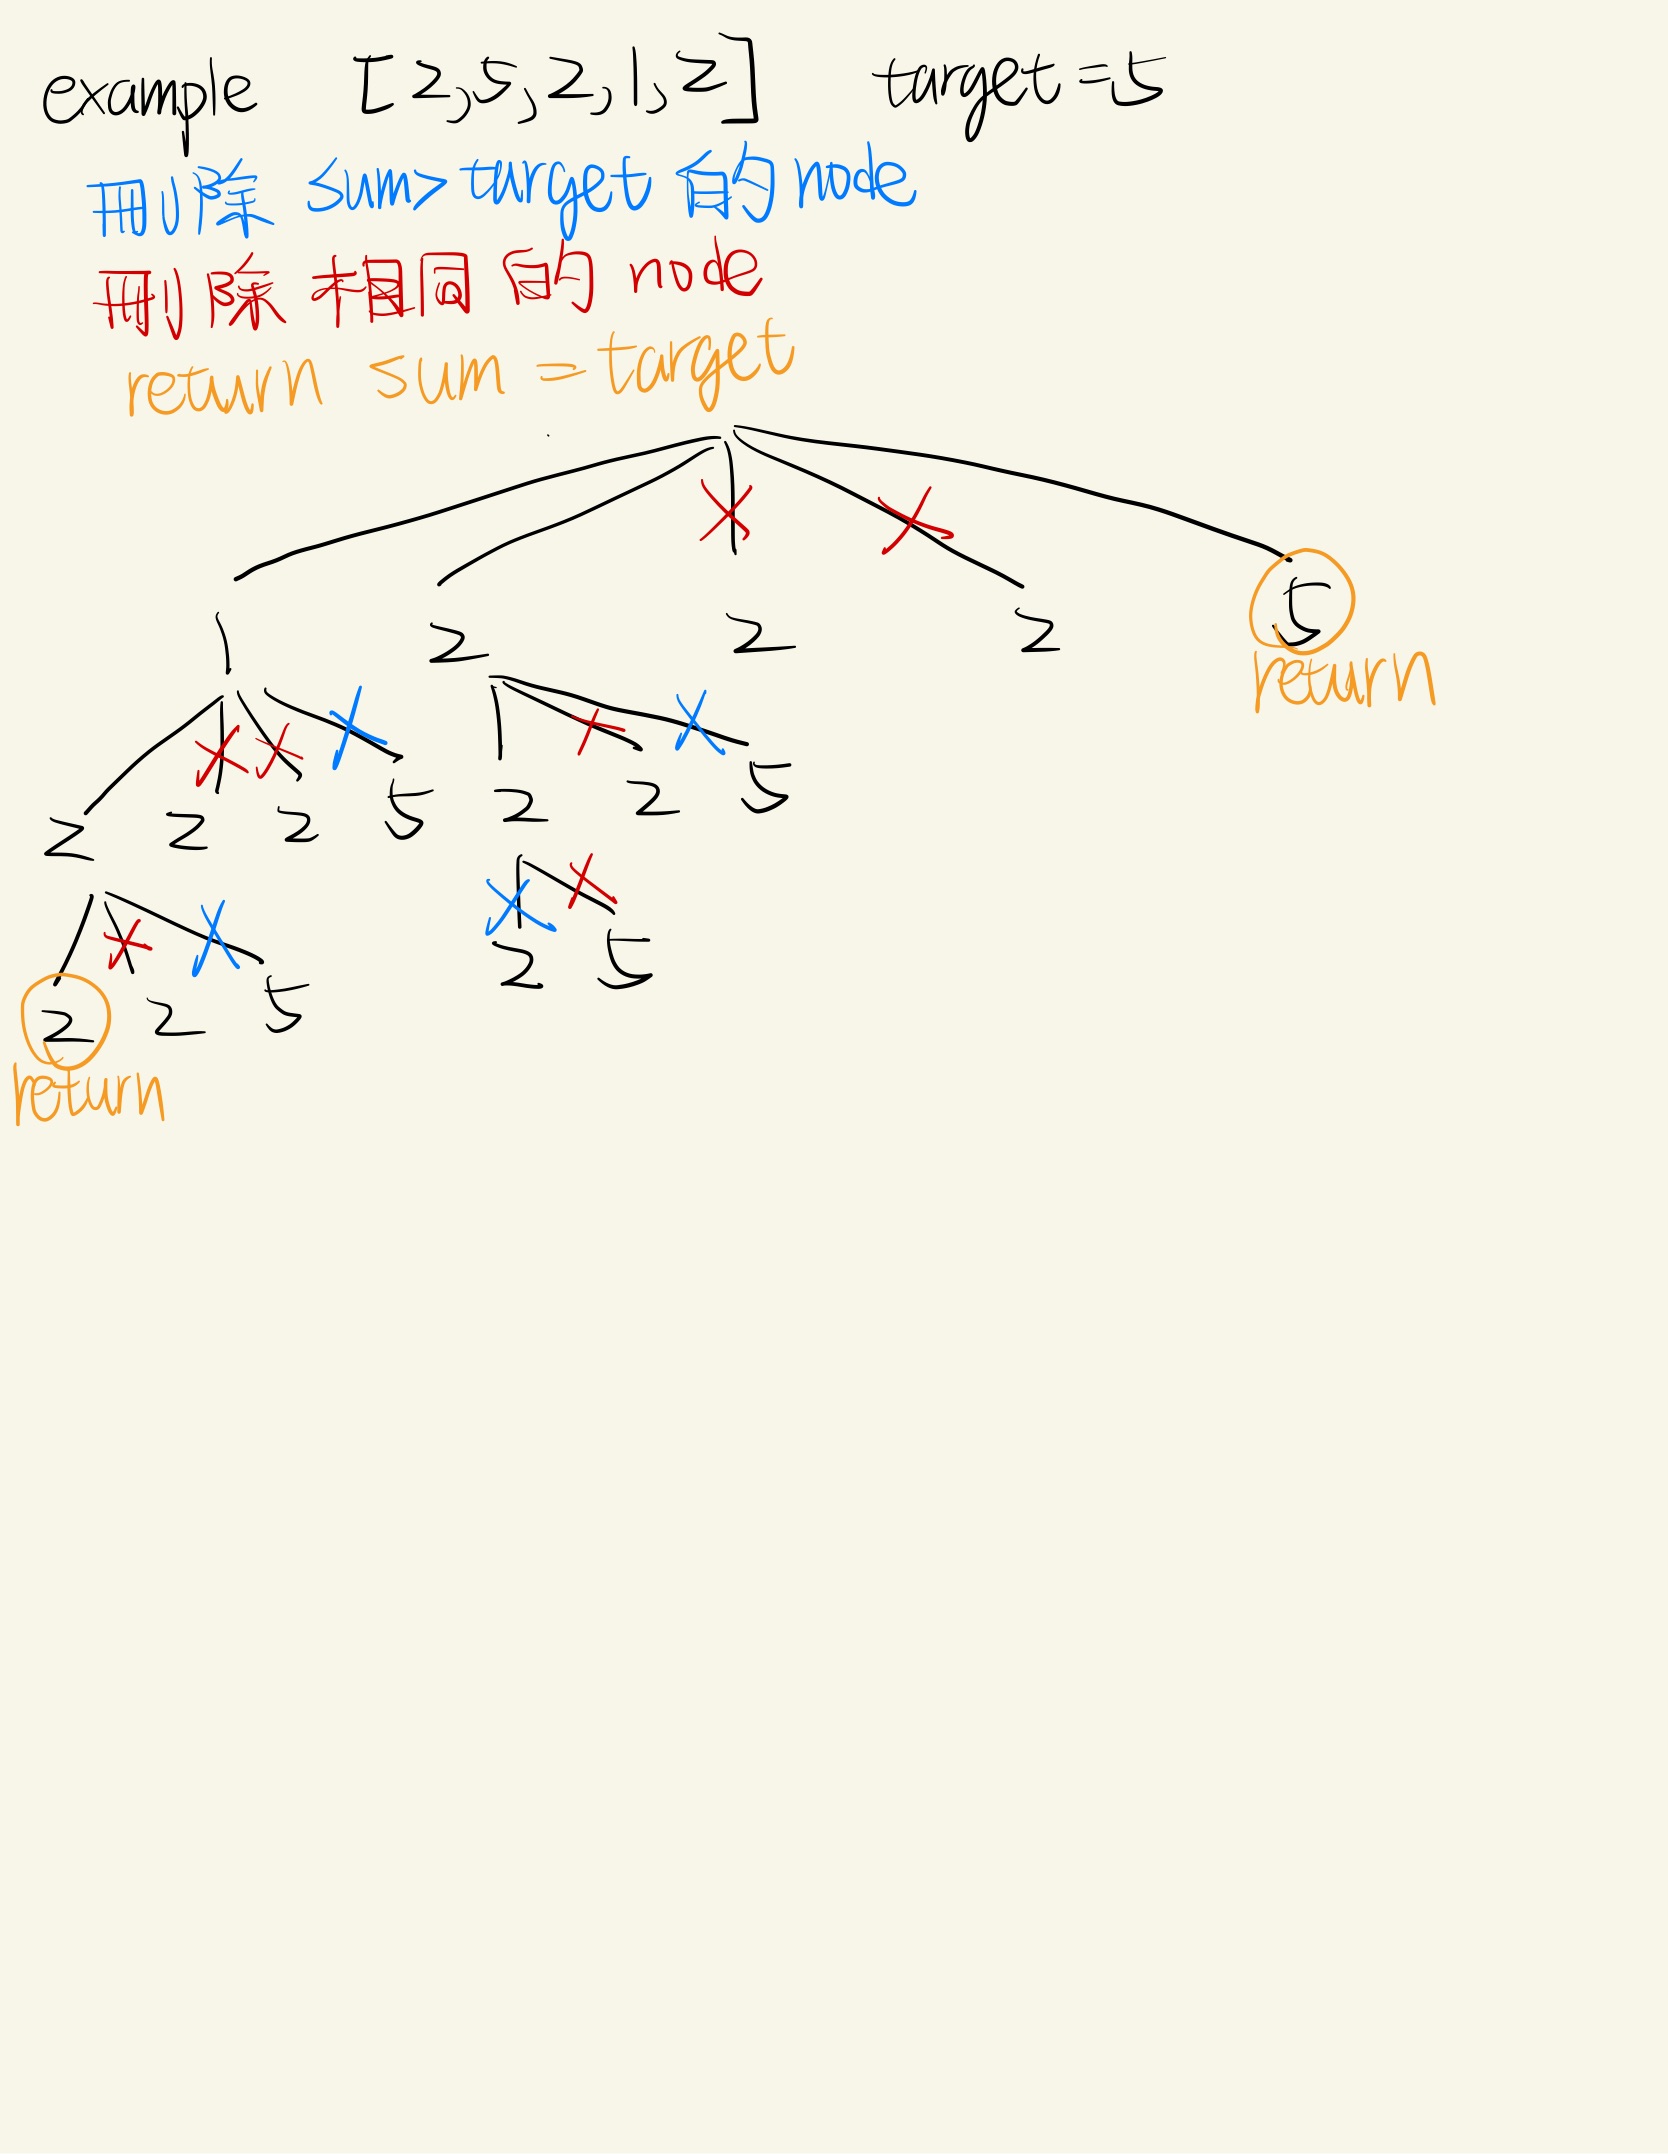 example [2,5,2,1,2] target=5
刪除 sum>target 的 node
刪除 相同 的 node
return sum = target
1 2 2 2 5
return
2 2 2 5 2 2 5
2 2 5 2 5
return